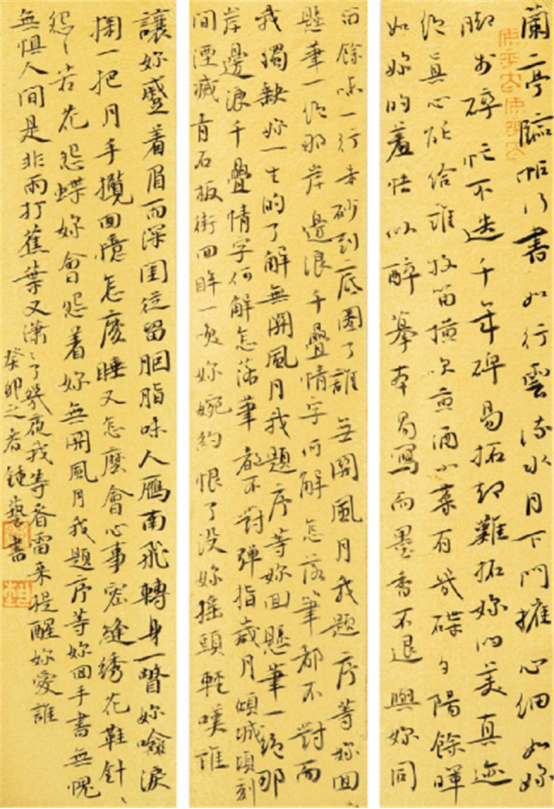 蘭亭臨帖行書如行雲流水月下門推心細如妳
腳步碎忙不迭千年碑易拓卻難拓妳的美真迹
絕真心能給誰牧笛橫吹黃酒小菜有幾碟夕陽餘暉
如妳的羞怯似醉摹本易寫而墨香不退與妳同
留餘味一行朱砂到底圈了誰無關風月我題序等妳回
懸筆一絕那岸邊浪千疊情字何解怎落筆都不對而
我獨缺妳一生的了解無關風月我題序等妳回懸筆一絕那
岸邊浪千疊情字何解怎落筆都不對彈指歲月傾城頃刻
間湮滅青石板街回眸一笑妳婉約恨了没妳搖頭輕嘆誰
讓妳蹙着眉而深閨徒留胭脂味人雁南飛轉身一瞥妳噙淚
掬一把月手攬回憶怎麼睡又怎麼會心事密縫綉花鞋針々
怨々若花怨蝶妳會怨着妳無關風月我題序等妳回手書無愧
無懼人間是非雨打蕉葉又瀟々了幾夜我等春雷来提醒妳愛誰
癸卯之春鍾藝書